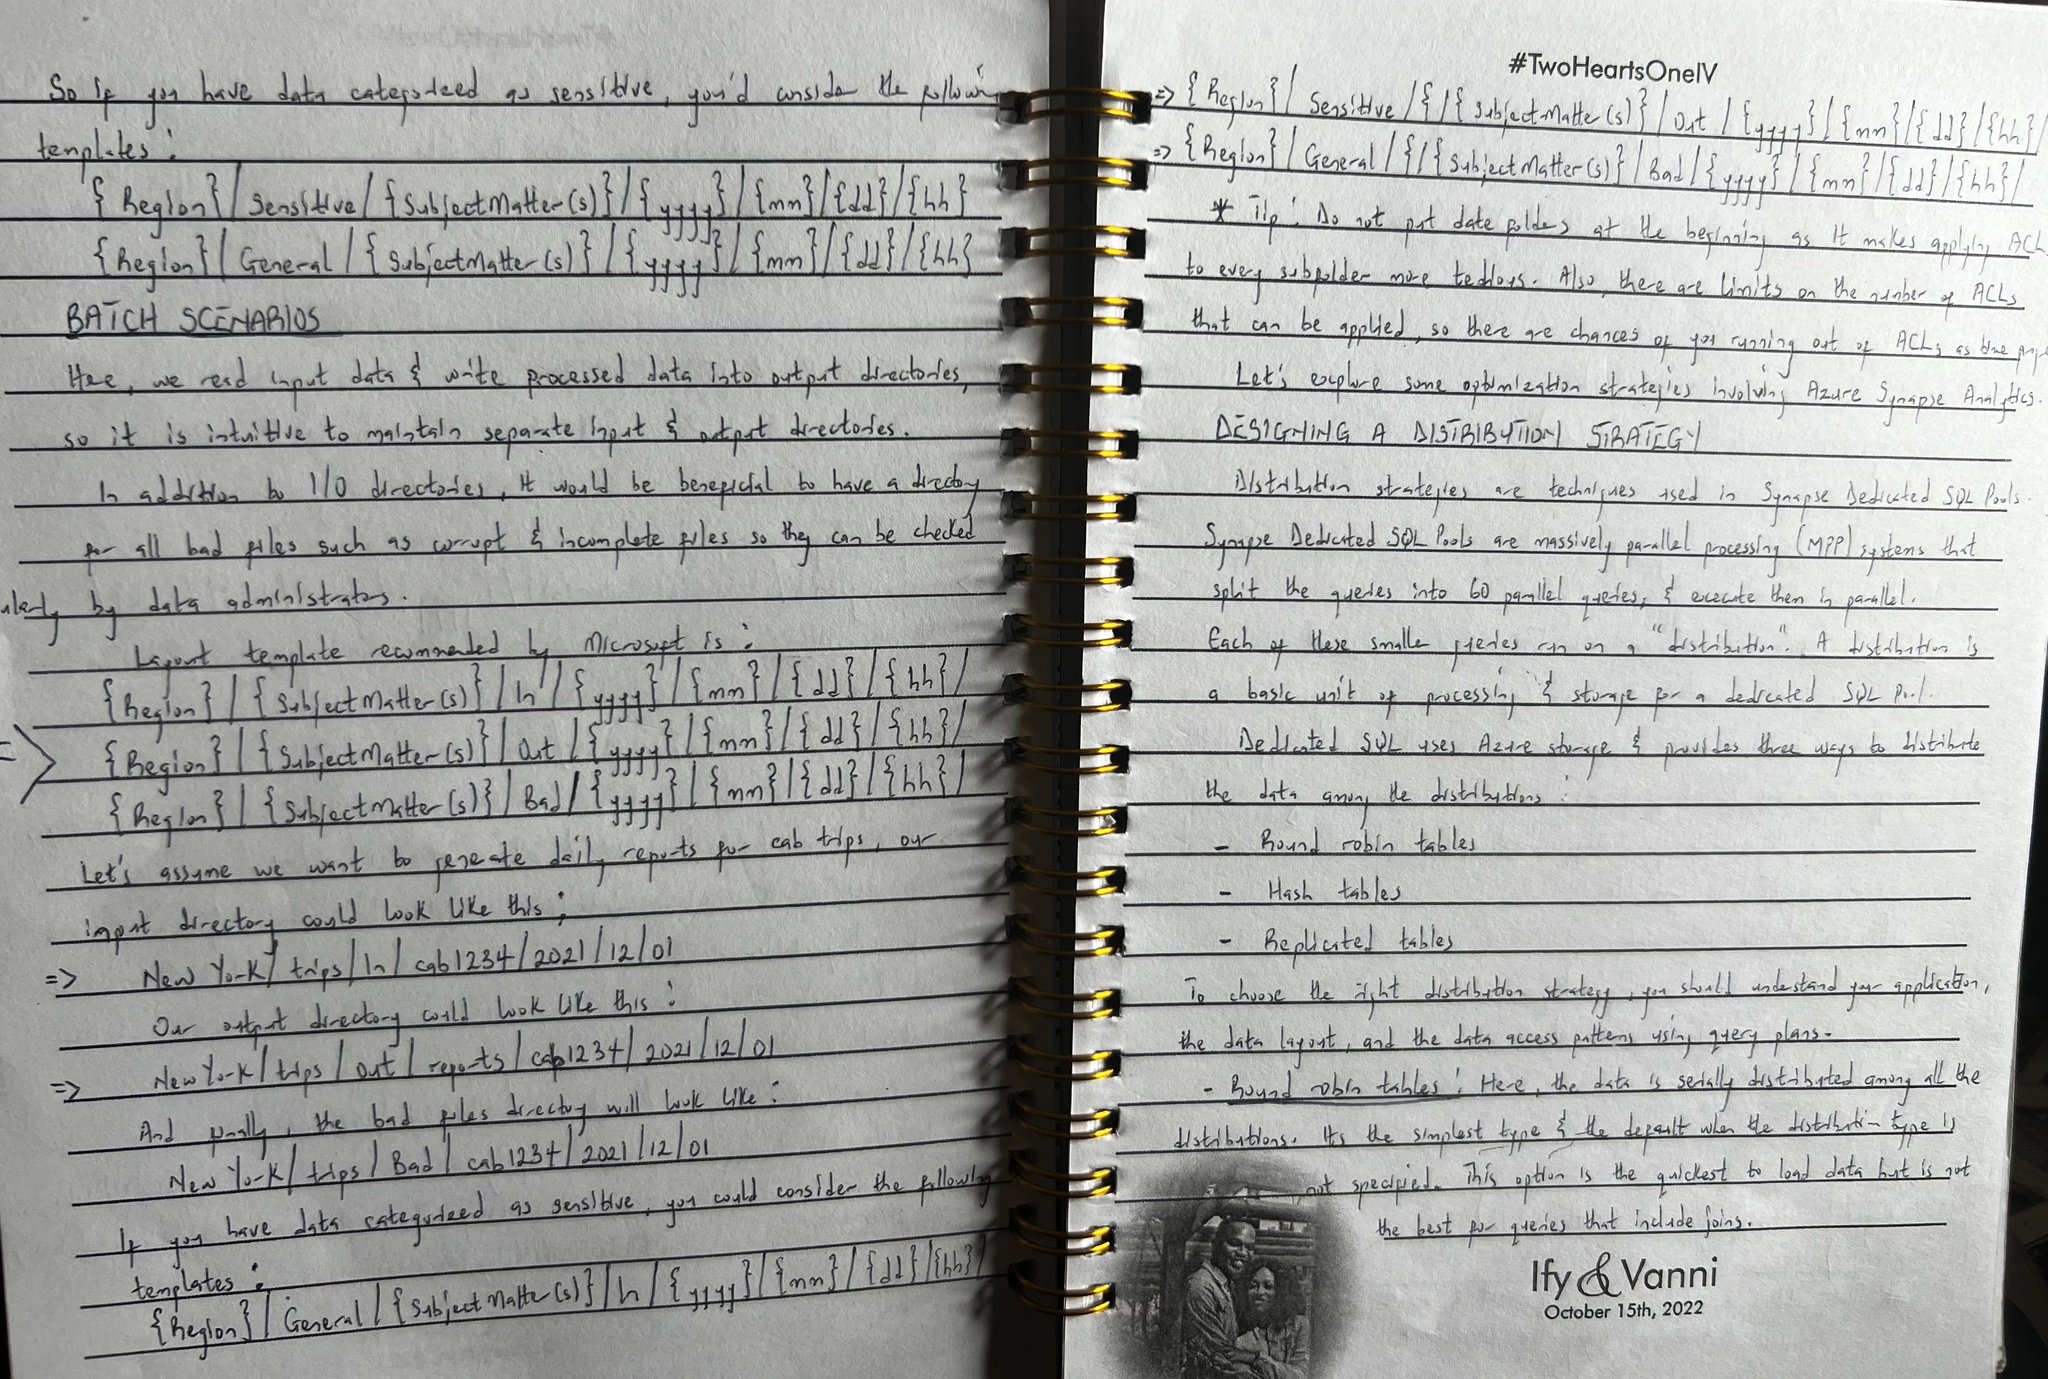 So if you have data categorized as sensitive, you'd consider the followin
templates:
{Region}/Sensitive/{SubjectMatter(s)}/{yyyy}/{mm}/{dd}/{hh}
{Region}/General/{SubjectMatter(s)}/{yyyy}/{mm}/{dd}/{hh}
BATCH SCENARIOS
Here, we read input data & write processed data into output directories,
so it is intuitive to maintain separate input & output directories.
In addition to I/O directories, it would be beneficial to have a directory
for all bad files such as corrupt & incomplete files so they can be checked
ularly by data administrators.
Layout template recommended by Microsoft is:
{Region}/{SubjectMatter(s)}/In/{yyyy}/{mm}/{dd}/{hh}/
=> {Region}/{SubjectMatter(s)}/Out/{yyyy}/{mm}/{dd}/{hh}/
{Region}/{SubjectMatter(s)}/Bad/{yyyy}/{mm}/{dd}/{hh}/
Let's assume we want to generate daily reports for cab trips, our
input directory could look like this:
=> New York/trips/In/cab1234/2021/12/01
Our output directory could look like this:
=> New York/trips/Out/reports/cab1234/2021/12/01
And finally, the bad files directory will look like:
New York/trips/Bad/cab1234/2021/12/01
If you have data categorized as sensitive, you could consider the following
templates:
{Region}/General/{SubjectMatter(s)}/In/{yyyy}/{mm}/{dd}/{hh}/
#TwoHeartsOneIV
=> {Region}/Sensitive/{/{SubjectMatter(s)}/Out/{yyyy}/{mm}/{dd}/{hh}/
=> {Region}/General/{/{SubjectMatter(s)}/Bad/{yyyy}/{mm}/{dd}/{hh}/
* Tip: Do not put date folders at the beginning as it makes applying ACL
to every subfolder more tedious. Also, there are limits on the number of ACLs
that can be applied, so there are chances of you running out of ACLs as time prog
Let's explore some optimization strategies involving Azure Synapse Analytics.
DESIGNING A DISTRIBUTION STRATEGY
Distribution strategies are techniques used in Synapse Dedicated SQL Pools.
Synapse Dedicated SQL Pools are massively parallel processing (MPP) systems that
split the queries into 60 parallel queries, & execute them in parallel.
Each of these smaller queries run on a "distribution". A distribution is
a basic unit of processing & storage for a dedicated SQL Pool.
Dedicated SQL uses Azure storage & provides three ways to distribute
the data among the distributions:
- Round robin tables
- Hash tables
- Replicated tables
To choose the right distribution strategy, you should understand your application,
the data layout, and the data access patterns using query plans.
- Round robin tables: Here, the data is serially distributed among all the
distributions. It's the simplest type & the default when the distribution type is
not specified. This option is the quickest to load data but is not
the best for queries that include joins.
Ify & Vanni
October 15th, 2022